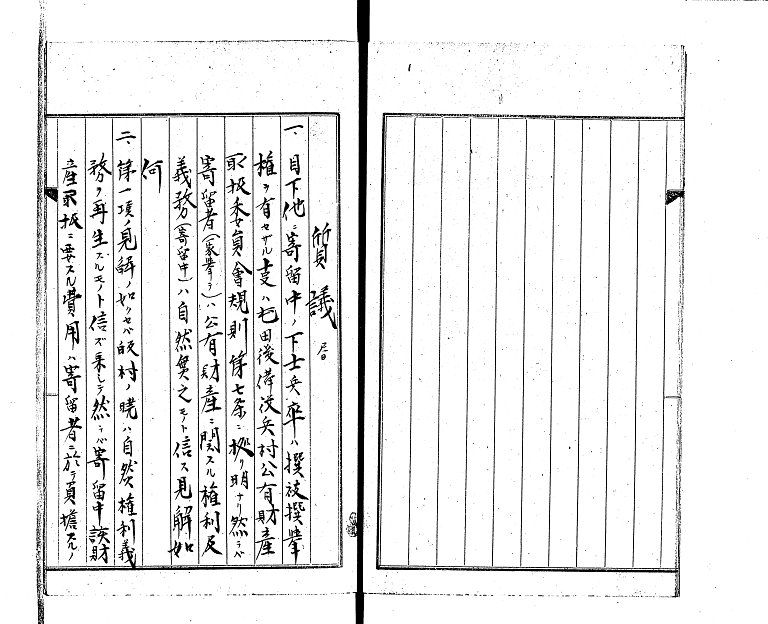 質議
一、目下他ニ寄留中ノ下士兵卒ハ撰被撰挙
権ヲ有セザル支ハ屯田後備役兵村公有財産
取扱委員會規則第七条ニ拠リ明ナリ然ラバ
寄留者ハ公有財産ニ関スル権利及
義務(寄留中)ハ自然無之モノト信ス見解如
何
二、第一項ノ見解ノ如クセバ皈村ノ暁ハ自然権利義
務ヲ再生ズルモノト信ズ果シテ然ラバ寄留中該財
産取扱ニ要スル費用ハ寄留者ニ於テ負擔スルノ